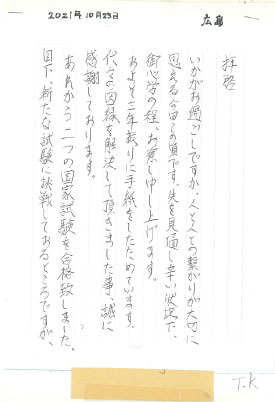 2021年10月23日
広島
拝啓
いかがお過ごしですか。人と人との繋がりが大切に
思える今日この頃です。先を見通し辛い状況下、
御心労の程、お察し申し上げます。
およそ三年振りに手紙をしたためています。
代々の因縁を解決して頂きました事、誠に
感謝しております。
あれから二つの国家試験を合格致しました。
目下、新たな試験に挑戦しておるところですが、
T.K